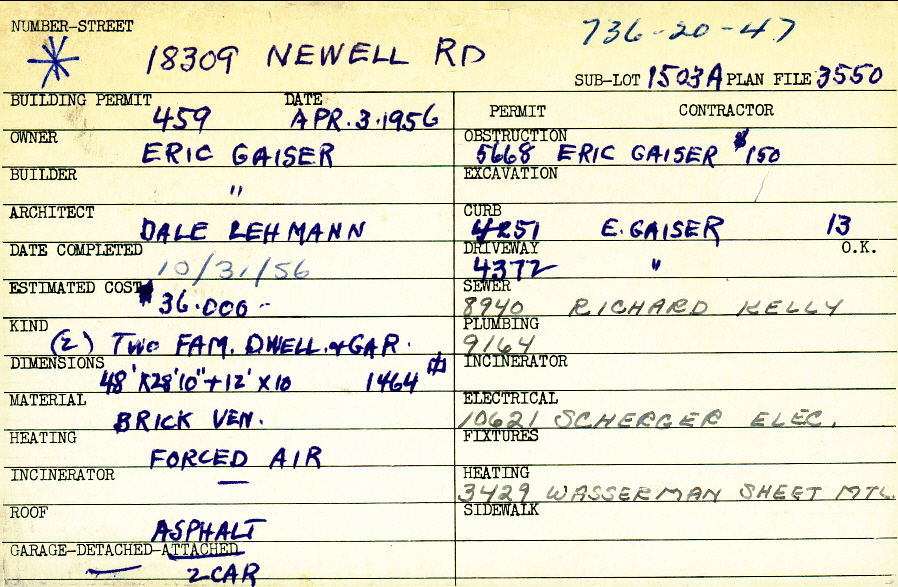 NUMBER-STREET
736-20-47
18309 NEWELL RD
SUB-LOT 1503A PLAN FILE 3550
BUILDING PERMIT DATE
459 APR. 3. 1956
OWNER
ERIC GAISER
BUILDER
"
ARCHITECT
DALE LEHMANN
DATE COMPLETED
10/31/56
ESTIMATED COST
$36.000-
KIND
(2) TWO FAM. DWELL. & GAR.
DIMENSIONS
48' X 28'10" + 12' X 10 1464
MATERIAL
BRICK VEN.
HEATING
FORCED AIR
INCINERATOR
—
ROOF
ASPHALT
GARAGE-DETACHED-ATTACHED
2 CAR
PERMIT CONTRACTOR
OBSTRUCTION
5668 ERIC GAISER $150
EXCAVATION
CURB
4251 E. GAISER 13
DRIVEWAY O.K.
4372 "
SEWER
8940 RICHARD KELLY
PLUMBING
9164
INCINERATOR
ELECTRICAL
10621 SCHERGER ELEC.
FIXTURES
HEATING
3429 WASSERMAN SHEET MTL.
SIDEWALK